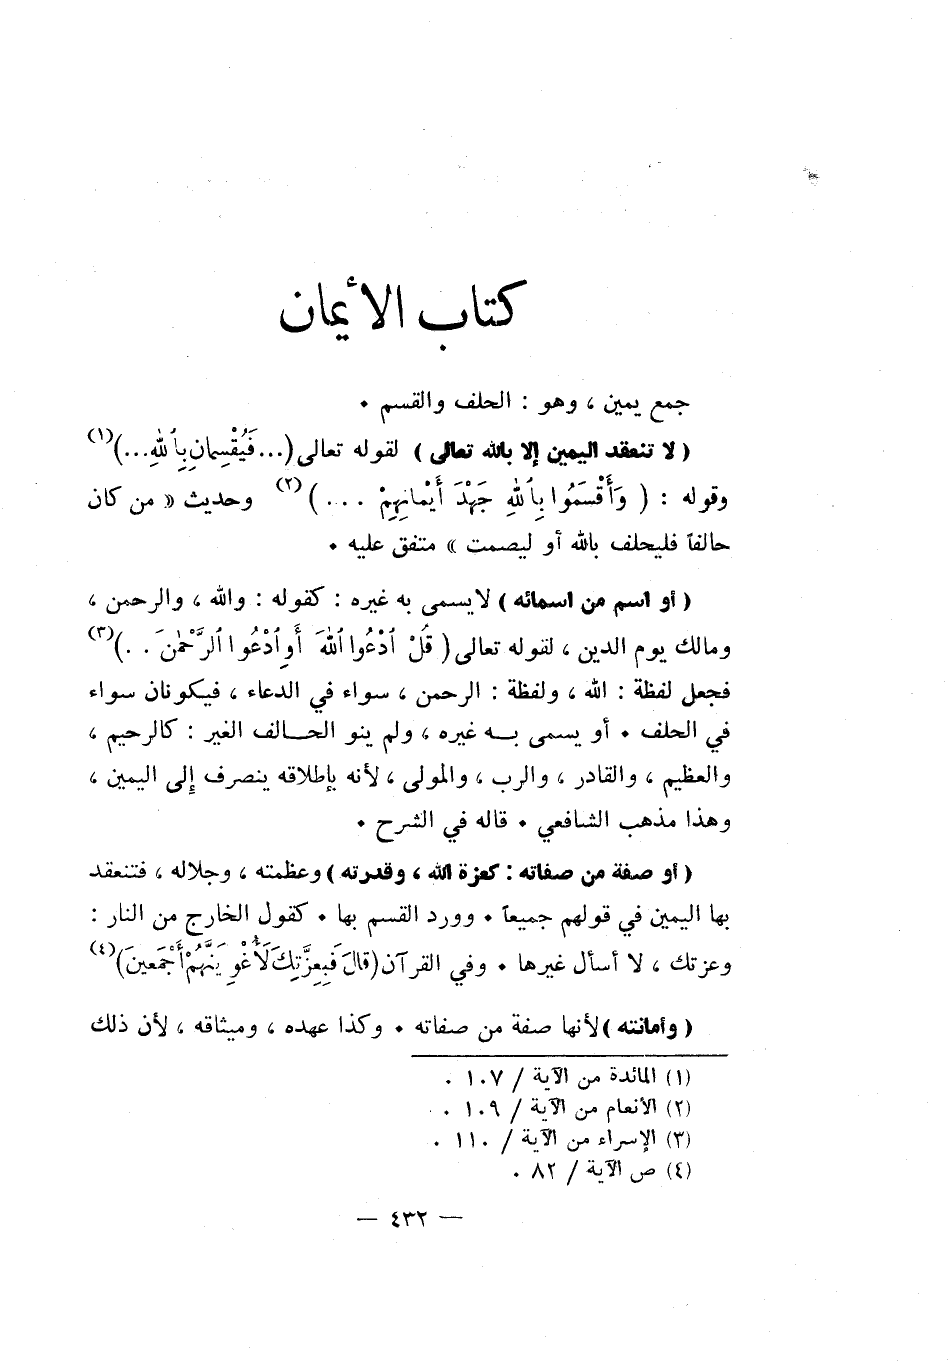 كتاب الأيمان
جمع يمين ، وهو : الحلف والقسم .
( لا تنعقد اليمين إلا بالله تعالى ) لقوله تعالى (... فَيُقْسِمانِ بِٱللهِ...)(١)
وقوله : ( وَأَقْسَمُوا بِٱللهِ جَهْدَ أَيْمانِهِمْ ... )(٢) وحديث « من كان
حالفاً فليحلف بالله أو ليصمت » متفق عليه .
( أو اسم من اسمائه ) لايسمى به غيره : كقوله : والله ، والرحمن ،
ومالك يوم الدين ، لقوله تعالى ( قُلْ ٱدْعُوا ٱللهَ أَوِ ٱدْعُوا ٱلرَّحْمٰنَ . . )(٣)
فجعل لفظة : الله ، ولفظة : الرحمن ، سواء في الدعاء ، فيكونان سواء
في الحلف . أو يسمى بـه غيره ، ولم ينو الحـالف الغير : كالرحيم ،
والعظيم ، والقادر ، والرب ، والمولى ، لأنه بإطلاقه ينصرف إلى اليمين ،
وهذا مذهب الشافعي . قاله في الشرح .
( أو صفة من صفاته : كعزة الله ، وقدرته ) وعظمته ، وجلاله ، فتنعقد
بها اليمين في قولهم جميعاً . وورد القسم بها . كقول الخارج من النار :
وعزتك ، لا أسأل غيرها . وفي القرآن (قالَ فَبِعِزَّتِكَ لَأُغْوِيَنَّهُمْ أَجْمَعينَ)(٤)
( وأمانته ) لأنها صفة من صفاته . وكذا عهده ، وميثاقه ، لأن ذلك
(١) المائدة من الآية / ١٠٧ .
(٢) الأنعام من الآية / ١٠٩ .
(٣) الإسراء من الآية / ١١٠ .
(٤) ص الآية / ٨٢ .
— ٤٣٢ —